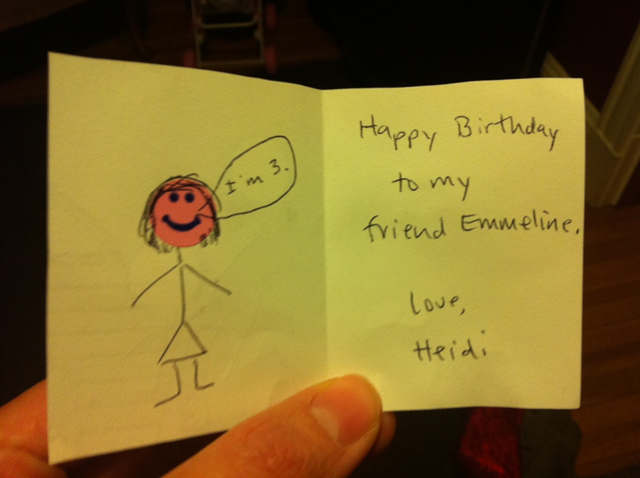 I'm 3.
Happy Birthday
to my
friend Emmeline.
Love,
Heidi